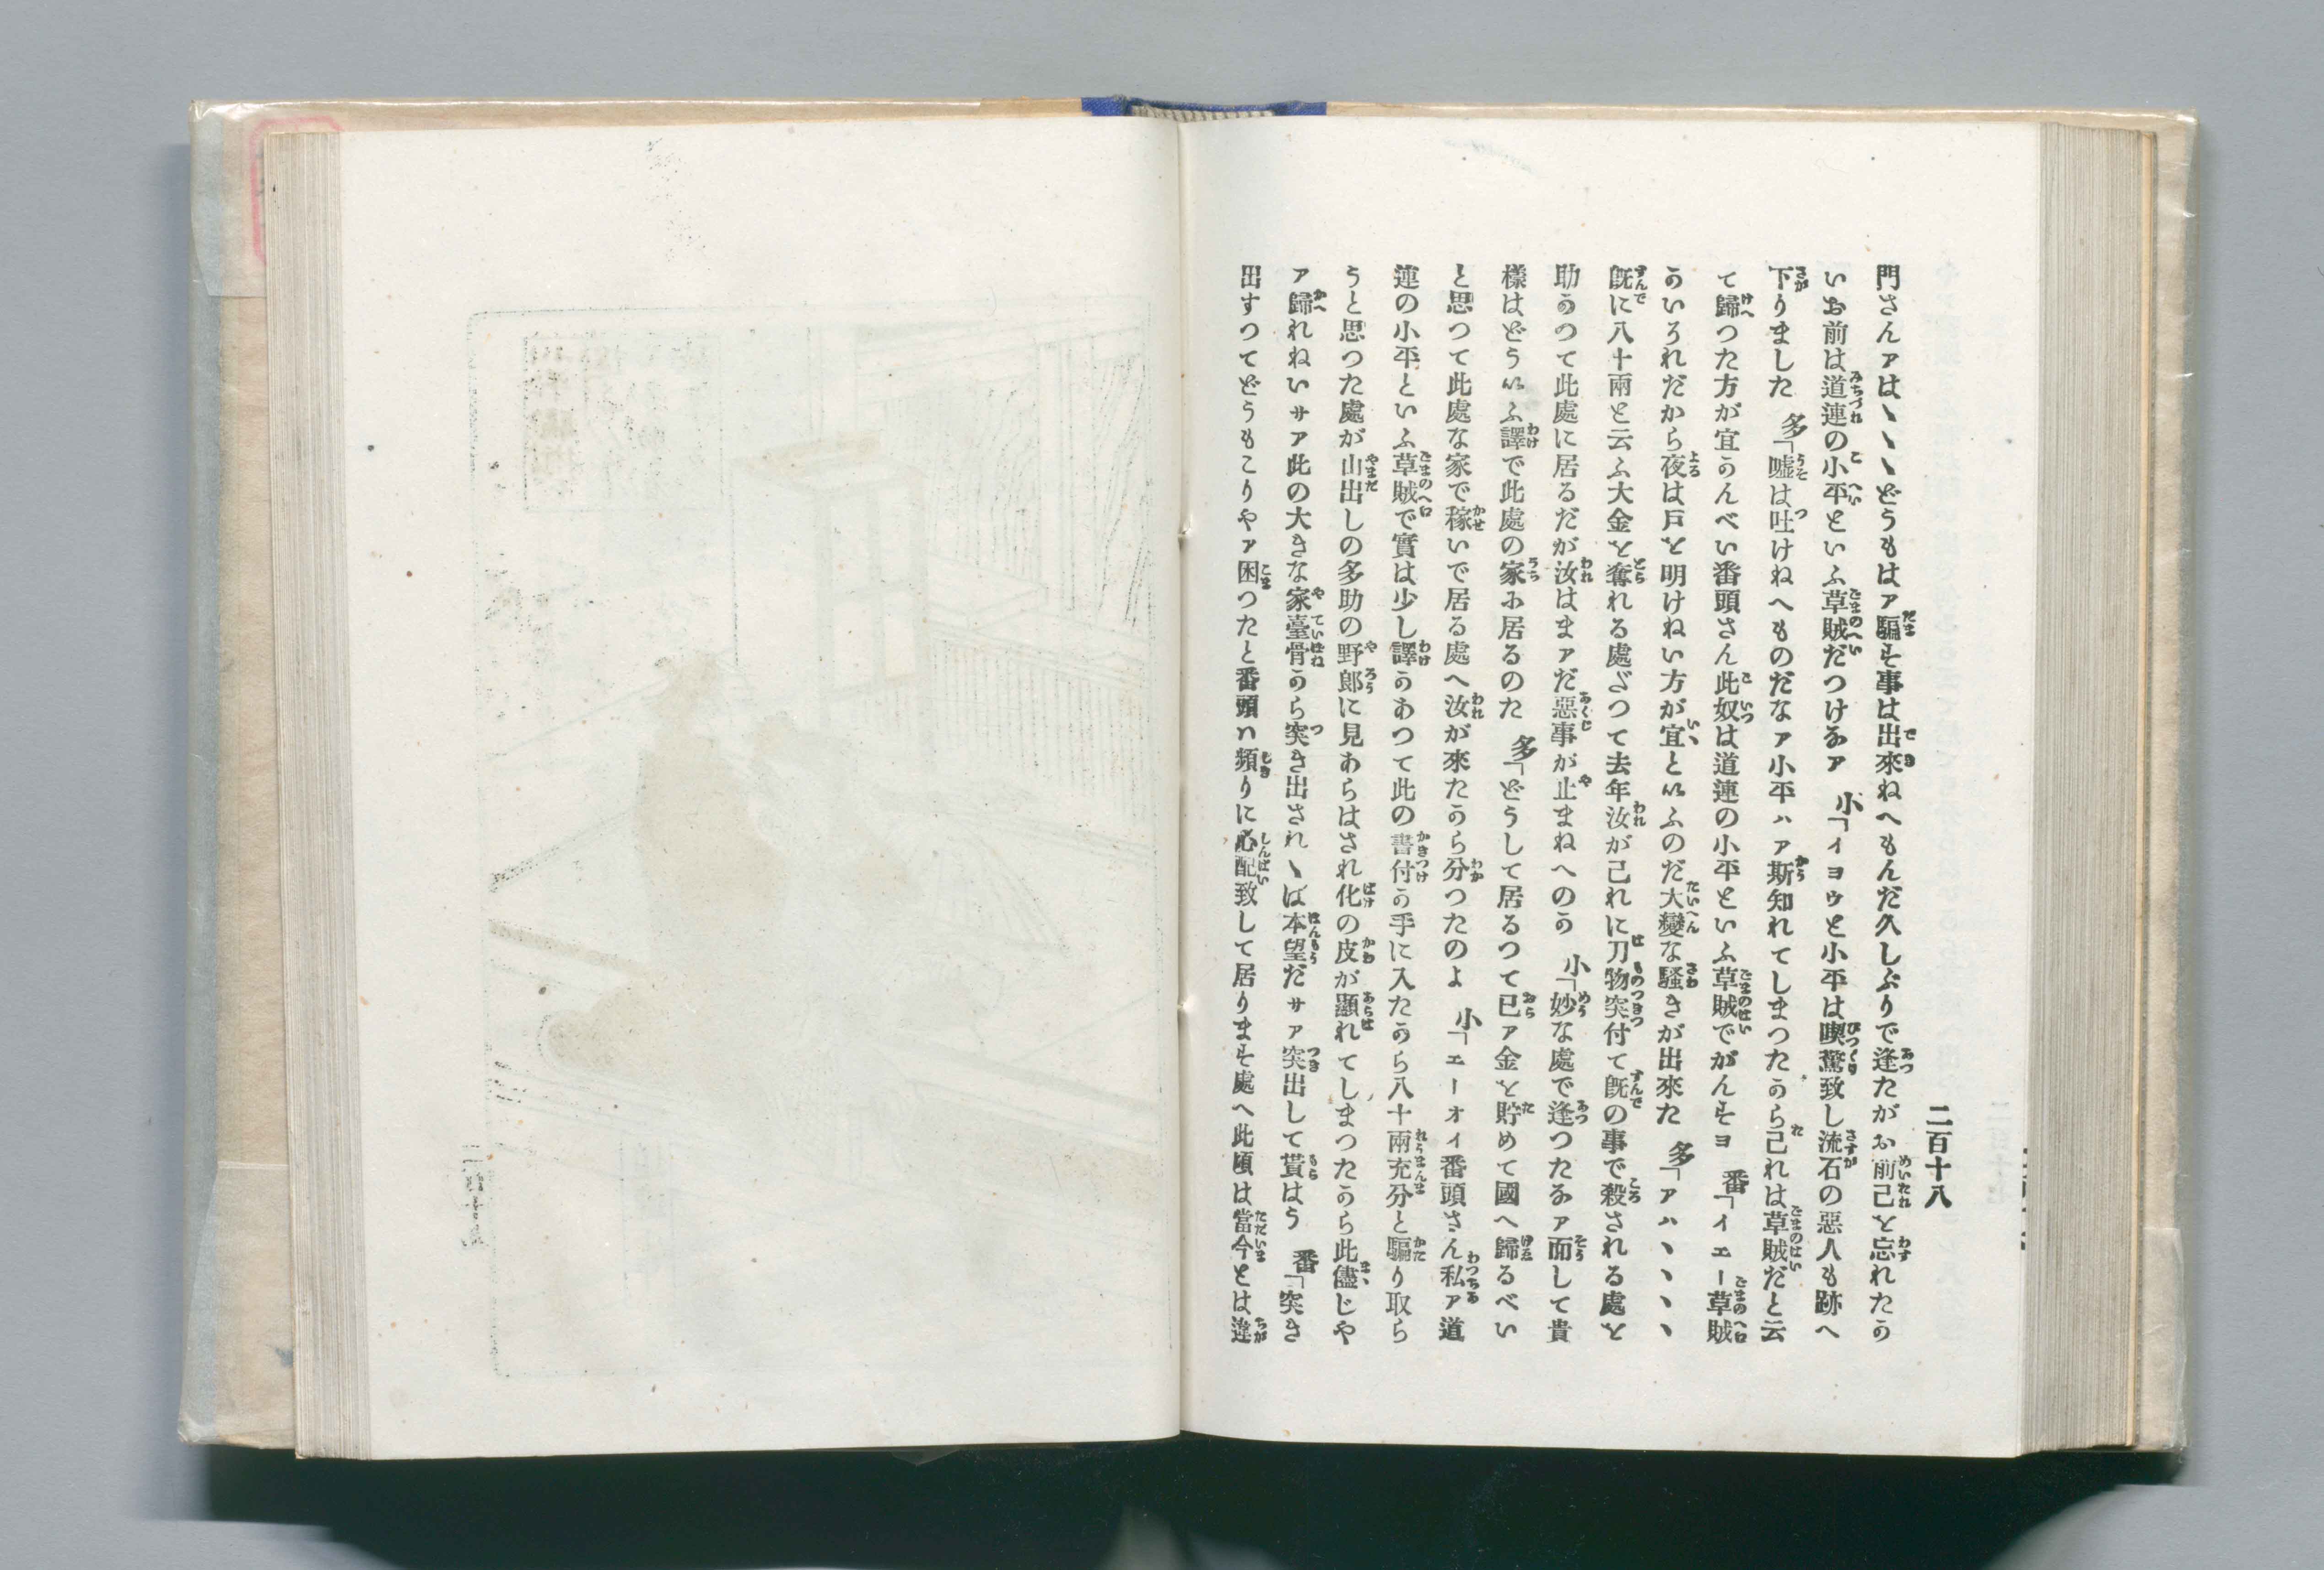 二百十八
門さんァは、、、どうもはァ騙す事は出來ねへもんだ久しぶりで逢たがお前己を忘れたか
いお前は道連の小平といふ草賊だつけなァ　小「イヨウと小平は喫驚致し流石の惡人も跡へ
下りました　多「嘘は吐けねへものだなァ小平ハァ斯知れてしまつたから己れは草賊だと云
て歸つた方が宜かんべい番頭さん此奴は道連の小平といふ草賊でがんすヨ　番「イエー草賊
かいろれだから夜は戸を明けねい方が宜といふのだ大變な騷きが出來た　多「アハ、、、、
既に八十兩と云ふ大金を奪れる處ざつて去年汝が己れに刀物突付て既の事で殺される處を
助かつて此處に居るだが汝はまァだ惡事が止まねへのか　小「妙な處で逢つたなァ而して貴
樣はどういふ譯で此處の家に居るのた　多「どうして居るつて已ァ金を貯めて國へ歸るべい
と思つて此處な家で稼いで居る處へ汝が來たから分つたのよ　小「エーオイ番頭さん私ァ道
連の小平といふ草賊で實は少し譯かあつて此の書付か手に入たから八十兩充分と騙り取ら
うと思つた處が山出しの多助の野郎に見あらはされ化の皮が顯れてしまつたから此儘じや
ァ歸れねいサァ此の大きな家臺骨から突き出されゝば本望だサァ突出して貰はう　番「突き
出すつてどうもこりやァ困つたと番頭ハ頻りに心配致して居ります處へ此頃は當今とは違